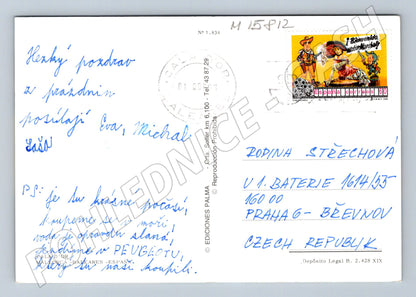 Nº 1.838
M 15812
Hezký pozdrav
z prázdnin
posílají Eva, Michal
Saša
PS: je tu krásné počasí,
koupeme se v moři,
voda je opravdu slaná,
v PEUGEOTU,
který tu naši koupili.
© EDICIONES PALMA - Ctra. Soller km 6,100 - Tel. 43 87 29
© Reproducción Prohibida
RODINA STŘECHOVÁ
V 1. BATERIE 1614/35
160 00
PRAHA 6 - BŘEVNOV
CZECH REPUBLIK
Depósito Legal B. 2.428 XIX
POHLEDNICE - CZECH